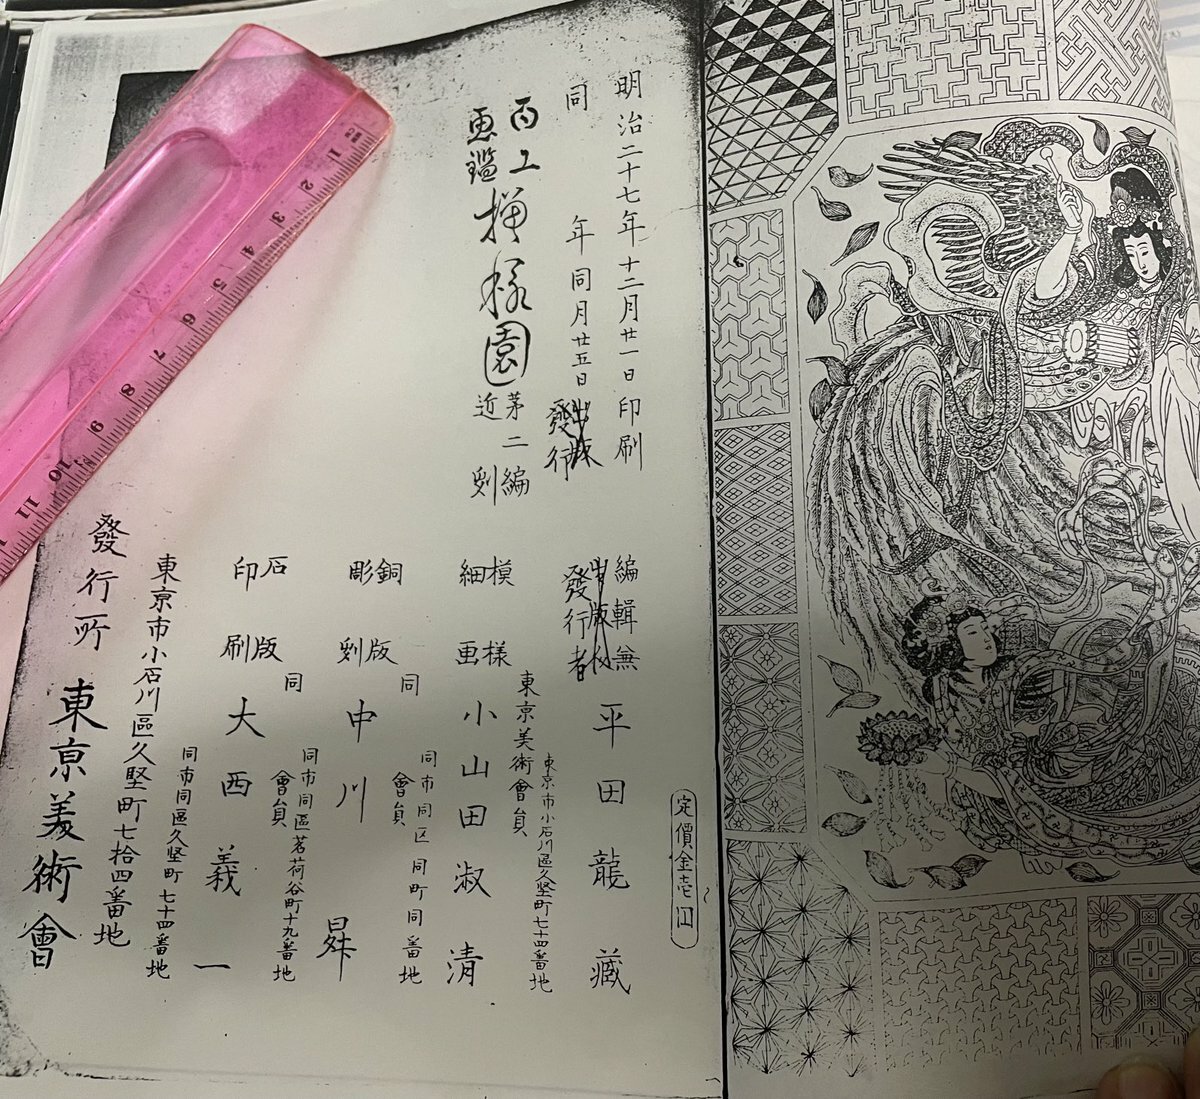 定價金壱円
明治二十七年十二月廿一日印刷
同年同月廿五日發行
百工画鑑 模様園 第二編 近刻
編輯兼發行者 平田龍藏
東京市小石川區久堅町七十四番地
東京美術會員
模様細画 小山田淑清
同市同区同町同番地
同 會員
銅版彫刻 中川昇
同市同區茗荷谷町十九番地
同 會員
石版印刷 大西義一
同市同區久堅町七十四番地
東京市小石川區久堅町七拾四番地
發行所 東京美術會
1 2 3 4 5 6 7 8 9 10 11